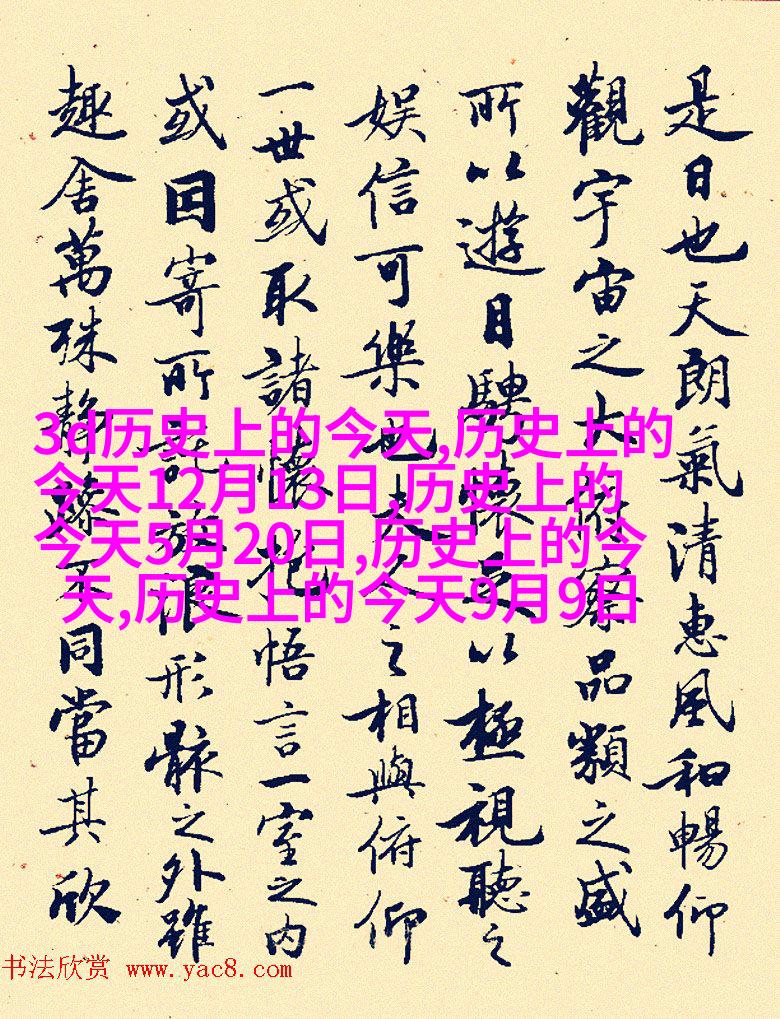 是日也天朗氣清惠風和暢仰
觀宇宙之大俯察品類之盛
所以遊目騁懷足以極視聽之
娛信可樂也夫人之相與俯仰
一世或取諸懷抱悟言一室之內
或因寄所託放浪形骸之外雖
趣舍萬殊靜躁不同當其欣
3d历史上的今天,历史上的
今天12月13日,历史上的
今天5月20日,历史上的今
天,历史上的今天9月9日
书法欣赏 www.yac8.com